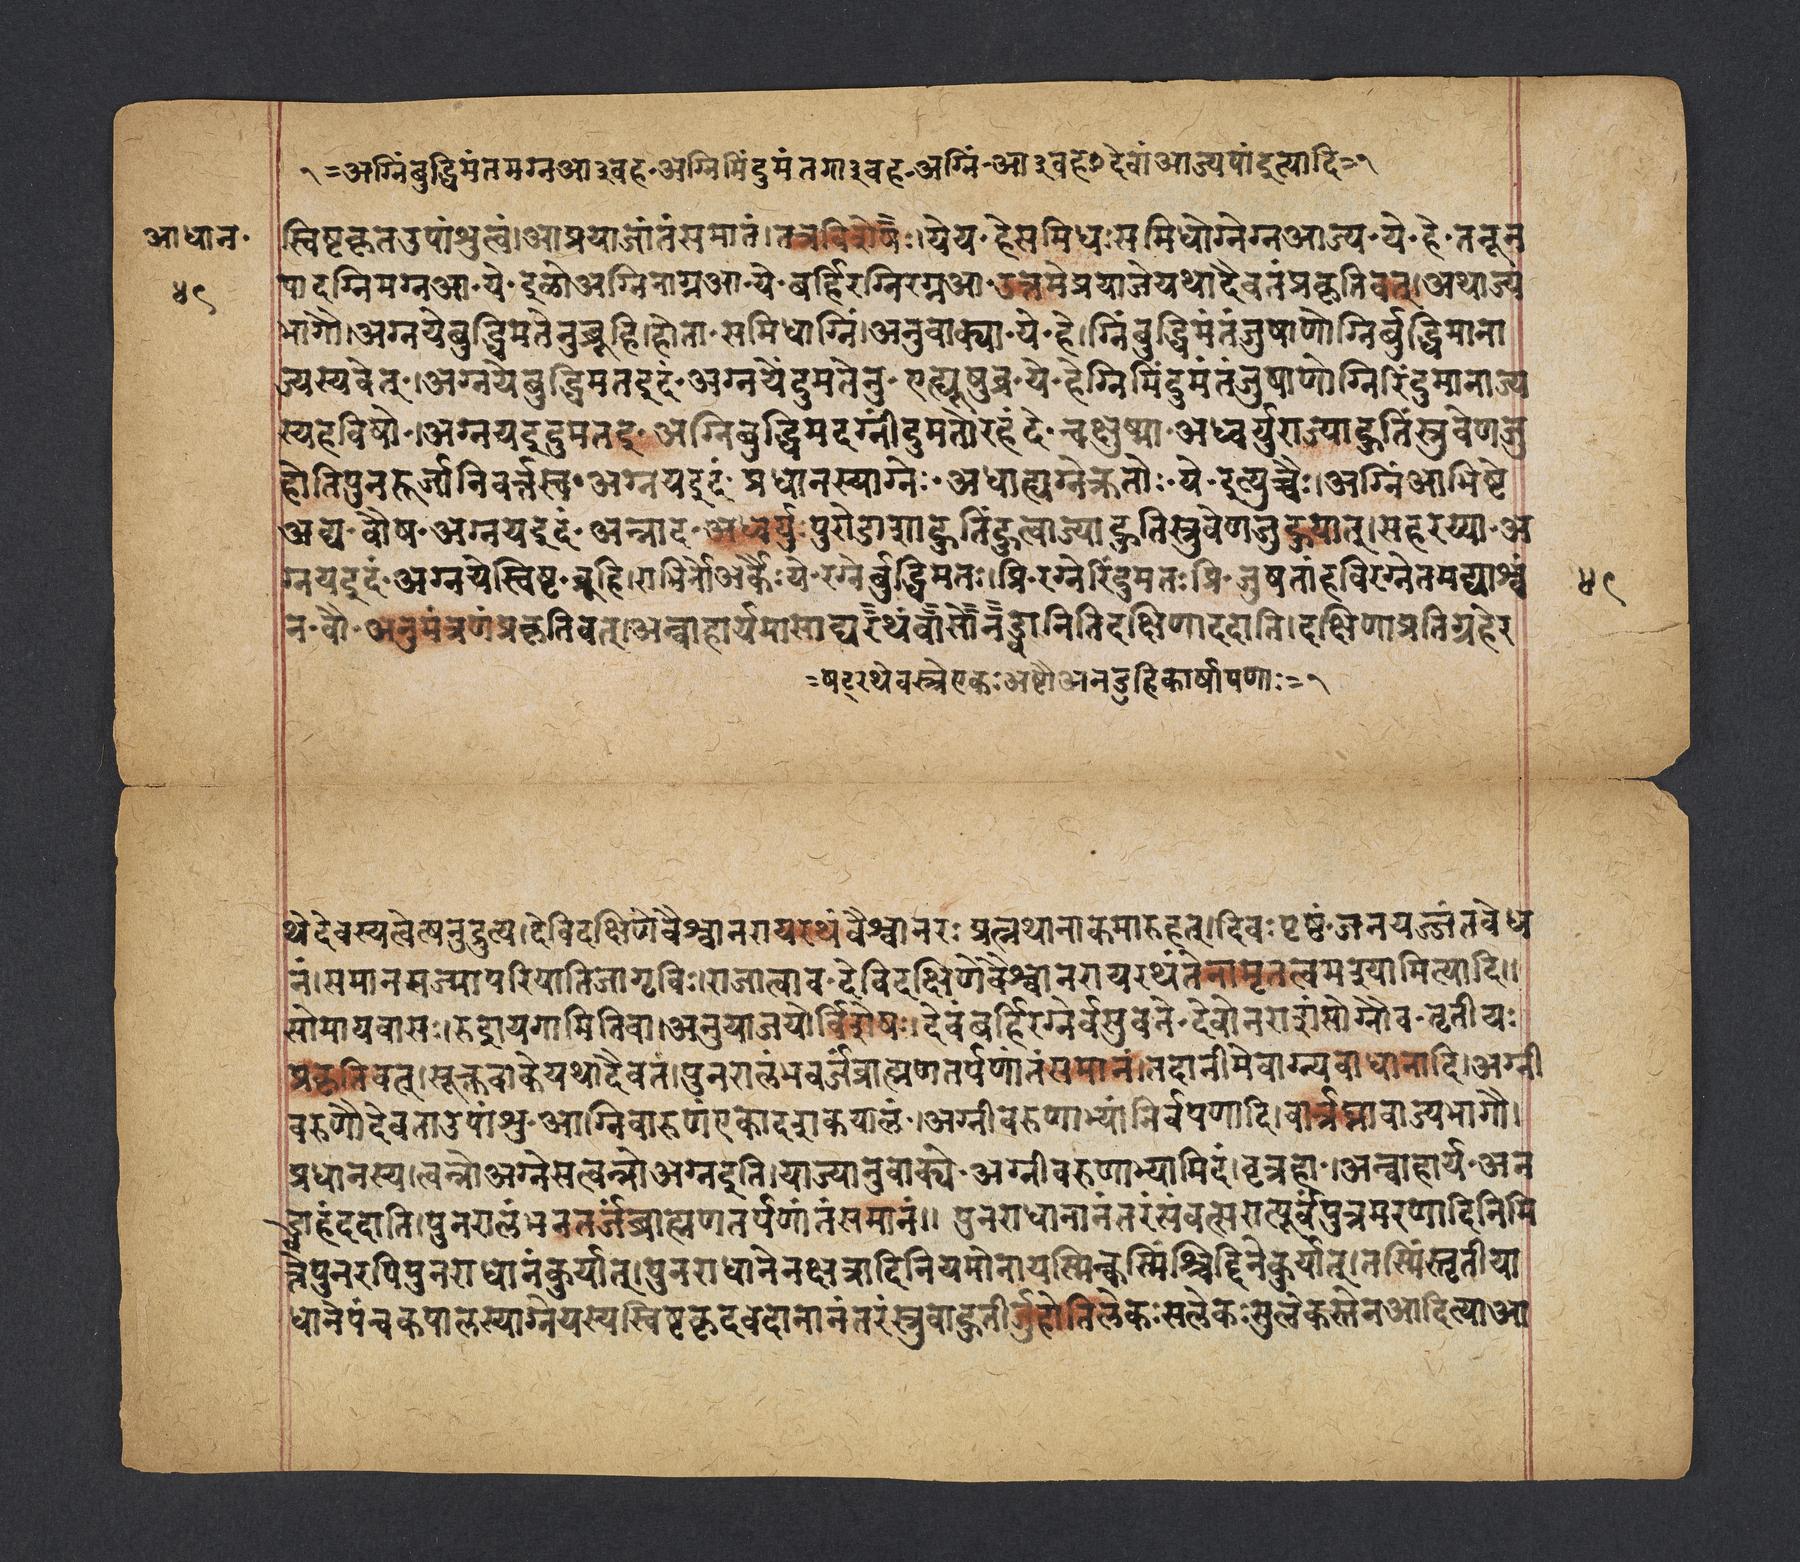 १=अग्निंबुद्धिमंतमग्नआ३वह॰अग्निमिंदुमंतमा३वह॰अग्निं॰आ३वह०देवांआज्यपांइत्यादि=१
आधान॰
४९
स्विष्टकृतउपांशुत्वं।आप्रयाजांतंसमानं।तत्रविशेषः।येय॰हेसमिधःसमिधोग्नेग्नआज्य॰ये॰हे॰तनून
पादग्निमग्नआ॰ये॰इळोअग्निनाग्नआ॰ये॰बर्हिरग्निरग्नआ॰उत्तमेप्रयाजेयथादैवतंप्रकृतिवत्।अथाज्य
भागौ।अग्नयेबुद्धिमतेनुब्रूहि।होता॰समिधाग्निं।अनुवाक्या॰ये॰हे।ग्निंबुद्धिमंतंजुषाणोग्निर्बुद्धिमाना
ज्यस्यवेतु॰।अग्नयेबुद्धिमतइदं॰अग्नयेंदुमतेनु॰एह्यूषुब्र॰ये॰हेग्निमिंदुमंतंजुषाणोग्निरिंदुमानाज्य
स्यहविषो॰।अग्नयइंदुमतइ॰अग्निबुद्धिमदग्नींदुमतोरहंदे॰न्चक्षुष्मा॰अध्वर्युराज्याहुतिंस्त्रुवेणजु
होतिपुनरूर्जानिवर्त्तस्व॰अग्नयइदं॰प्रधानस्याग्नेः॰अधाह्यग्नेक्रतोः॰ये॰इत्युच्चैः।अग्निंआभिष्टे
अद्य॰वौष॰अग्नयइदं॰अन्नाद॰अध्वर्युःपुरोडाशाहुतिंहुत्वाज्याहुतिस्त्रुवेणजुहुयात्।सहरय्या॰अ
ग्नयइदं॰अग्नयेस्विष्ट॰ब्रूहि।एभिर्नोअर्कैः॰ये॰रग्नेर्बुद्धिमतः।प्रि॰रग्नेरिंदुमतःप्रि॰जुषतांहविरग्नेतमद्याश्वं
४९
न॰वौ॰अनुमंत्रणंप्रकृतिवत्।अन्वाहार्यमासाद्यरथंवासोनड्वानितिदक्षिणाददाति।दक्षिणाप्रतिग्रहेर
=षट्रथेवस्त्रेएकःअष्टौअनडुहिकार्षापणाः=१
थेदेवस्यत्वेत्यनुद्रुत्य।देविदक्षिणेवैश्वानरायरथंवैश्वानरःप्रत्नथानाकमारुहत्।दिवःपृष्ठं॰जनयज्जंतवेध
नं।समानमज्मापरियातिजागृविः।राजात्वाव॰देविदक्षिणेवैश्वानरायरथंतेनामृतत्वमश्यामित्यादि।।
सोमायवासः।रुद्रायगामितिवा।अनुयाजयोर्विशेषः।देवंबर्हिरग्नेर्वसुवने॰देवोनराशंसोग्नौव॰तृतीयः
प्रकृतिवत्।सूक्तवाकेयथादैवतं।पुनरालंभवर्जंब्राह्मणतर्पणांतंसमानं।तदानीमेवाग्न्यवाधानादि।अग्नी
वरुणौदेवताउपांशु॰आग्निवारुणंएकादशकपालं॰।अग्नीवरुणाभ्यांनिर्वपणादि।वार्त्रघ्नावाज्यभागौ।
प्रधानस्य।त्वन्नोअग्नेसत्वन्नोअग्नइति।याज्यानुवाक्ये॰अग्नीवरुणाभ्यामिदं।वृत्रहा॰।अन्वाहार्य॰अन
ड्वाहंददाति।पुनरालंभनतर्जंब्राह्मणतर्पणांतंसमानं।। पुनराधानानंतरंसंवत्सरात्पूर्वंपुत्रमरणादिनिमि
त्तेपुनरपिपुनराधानंकुर्यात्।पुनराधानेनक्षत्रादिनियमोनायस्मिन्कस्मिंश्चिद्दिनेकुर्यात्।तस्मिंस्तृतीया
धानेपंचकपालस्याग्नेयस्यस्विष्टकृदवदानानंतरंस्त्रुवाहुतीर्जुहोतिलेकःसलेकःसुलेकस्तेनआदित्याआ